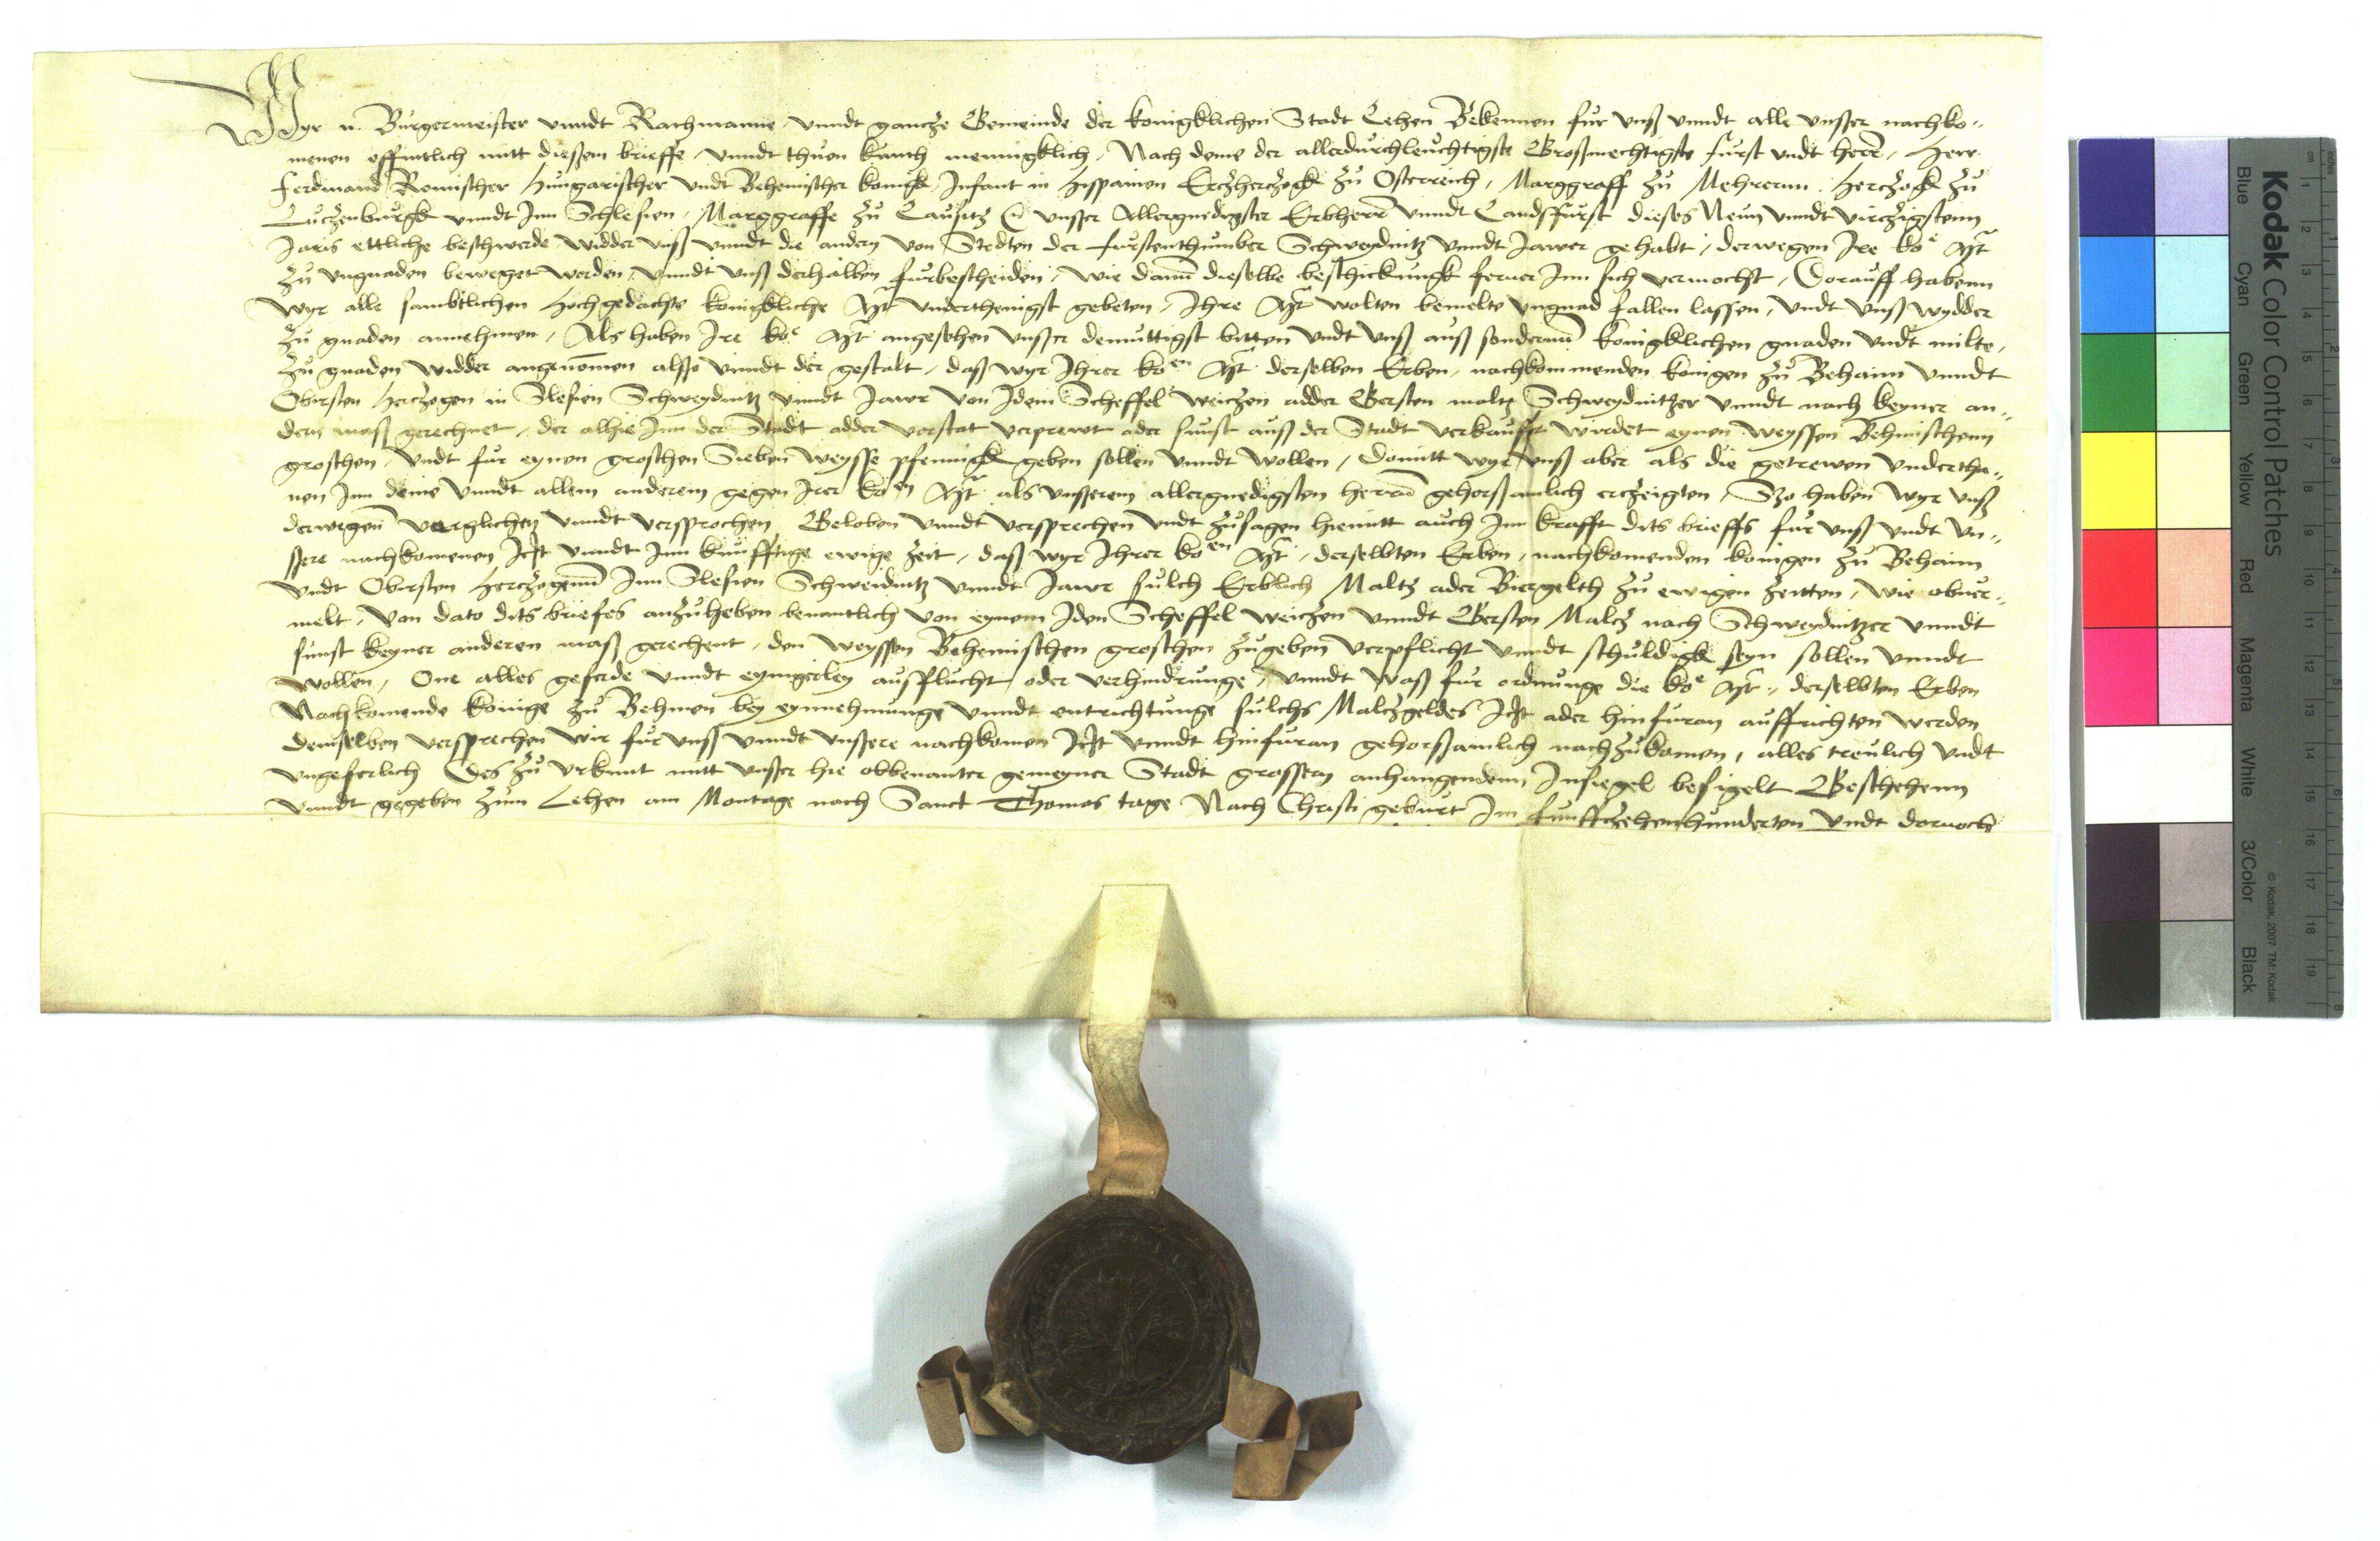 Wyr n. Burgermeister vnndt Rathmanne vnndt gancze Gemeinde der konigklichen Stadt Lehen Bekennen fur vnß vnndt alle vnsser nachko-
menen offintlich mitt diessem brieffe vnndt thuen kunth mennigklich, Nach deme der allerdurchleuchtigste Großmechtigste furst vndt herr, Herr
Ferdinand Romischer Hungarischer vndt Behemischer konigk, Infant in Hyspanien Erczherczogk zu Osterreich, Marggraff zu Mehrernn Herczogk zu
Luczenburgk vnndt Inn Schlesien, Marggraffe zu Lausitz vnsser Allergnedigster Erbherr vnndt Landsfurst dieses Neun vnndt virczigstenn
Jaris ettliche beschwerde widder vnß vnndt die andern von Stedten der furstenthumber Schweydnitz vnndt Jawer gehabt, derwegen Ire ko^e Mt
zu vngnaden beweget worden, vnndt vnß derhalben furbescheiden, wie dann dieselbe beschickungk ferner Inn sich vermocht, Dorauff habenn
wyr alle sambtlichen Hochgedachte konigkliche Mt vnderthenigst gebeten, Ihre Mt wolten bemelte vngnad fallen lassen, vndt vnß wydder
zu gnaden annehmen, Als haben Ire ko^e Mt angesehen vnsser demuttigst bitten vndt vnß auß sondernn konigklichen gnaden vndt milte,
zu gnaden widder angenomen alsso vnndt der gestalt, daß wyr Ihrer ko^en Mt derselben Erben, nachkommenden konigen zu Behaim vnndt
Obirsten Herczogen in Slesien Schweydnitz vnndt Jawr von Idem Scheffel weiczen adder Gersten maltz Schweydnitzer vnndt nach keyner an-
dern maß gerechnet, der alhie Inn der Stadt adder vorstat verprewt ader sunst auß der Stadt verkaufft wirdet eynen weyssen Behmischenn
groschen, vndt fur eynen groschen Sieben weysse pfennigk geben sollen vnndt wollen, Domitt wyr vnß aber als die getrewen vndertha-
nen Inn deme vnndt allem anderem gegen Irer ko^en Mt als vnsserem allergnedigsten herrn gehorßamlich erczeigten, Szo haben wyr vnß
derwegen verglichen vnndt versprochen Geloben vnndt versprechen vndt zusagen hiemitt auch Inn krafft dits brieffs fur vnß vndt vn-
ssere nachkomenen Iczt vnndt Inn kunfftige ewige zeit, daß wyr Ihrer ko^en Mt, derselbten Erben, nachkomenden konigen zu Behaim
vndt Obirsten Herczogenn Inn Slesien Schweidnitz vnndt Jawr sulch Erblich Maltz ader Biergelth zu ewigen zeitten, wie obuer-
melt, von dato dits briefes anzuheben benantlich von eynem Iden Scheffel weiczen vnndt Gersten Malcz nach Schweydnitzer vnndt
sunst keyner anderen maß gerechent, den weyssen Behemischen groschen zugeben verpflicht vnndt schuldigk seyn sollen vnndt
wollen, One alles geferde vnndt eynigerley ausflucht, oder verhindrunge, vnndt waß fur ordnunge die ko^e Mt, derselbten Erben
Nachkomende konige zu Behmen bey eynnehmunge vnndt entrichtunge sulchs Malczgeldes Iczt ader hinfuran auffrichten werden
demselben versprechen wir fur vnß vnndt vnssere nachkomen Iczt vnndt hinfuran gehorßamlich nachzukomen, alles treulich vndt
vngeferlich Des zu vrkunt mitt vnsser hie obbenanter gemeyner Stadt grossern anhangendem Insiegel besigelt Geschehenn
vnndt gegeben zum Lehen am Montage nach Sanct Thomas tage Nach Christi geburt Im funffczehenhunderten vndt dornoch
Kodak Color Control Patches
Blue Cyan Green Yellow Red Magenta White 3/Color Black
© Kodak, 2007 TM: Kodak